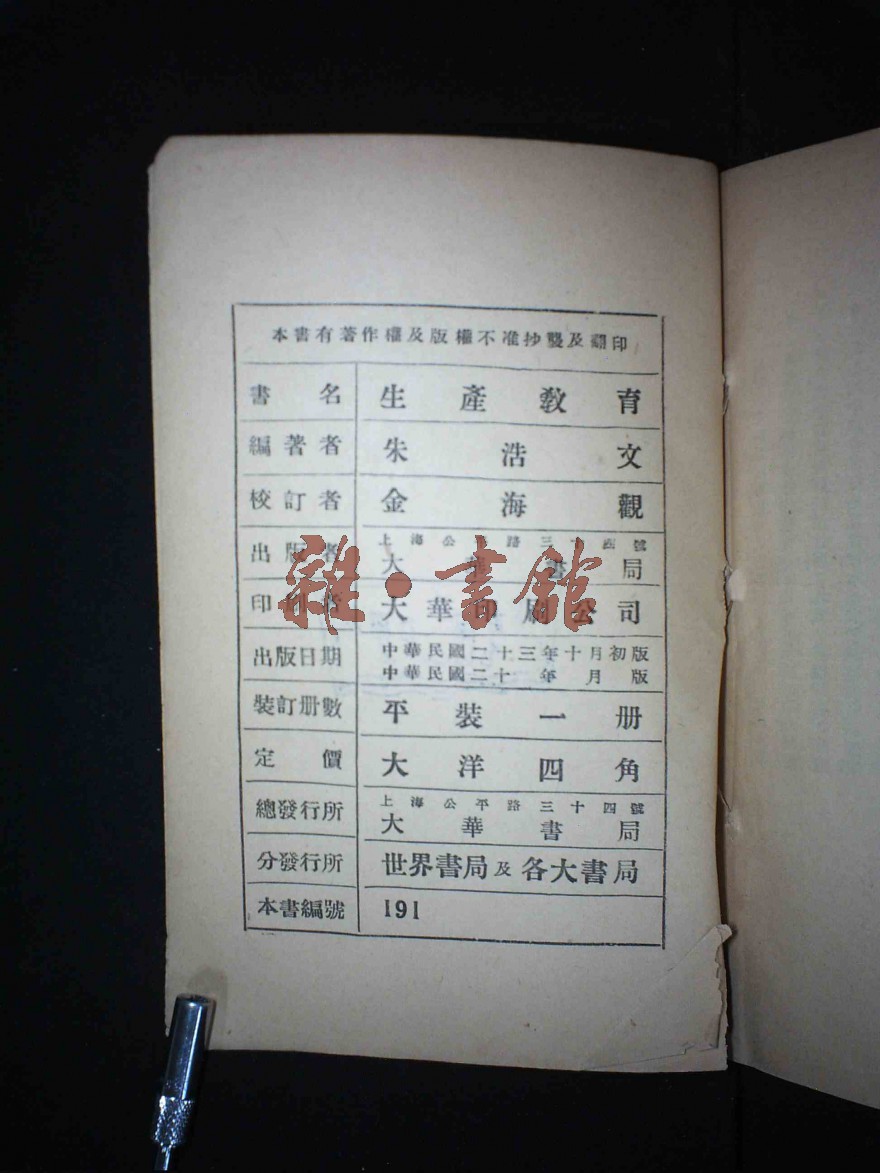 本書有著作權及版權不准抄襲及翻印
書名 生產教育
編著者 朱浩文
校訂者 金海觀
出版者 上海公平路三十四號
大華書局
印刷者 大華印刷公司
出版日期 中華民國二十三年十月初版
中華民國二十 年 月 版
裝訂册數 平裝一册
定價 大洋四角
總發行所 上海公平路三十四號
大華書局
分發行所 世界書局及各大書局
本書編號 191
雜·書館